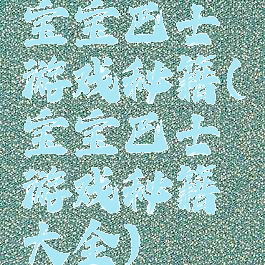 宝宝巴士
游戏秘籍(
宝宝巴士
游戏秘籍
大全)